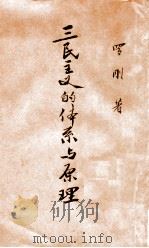 罗刚著
三民主义的体系与原理